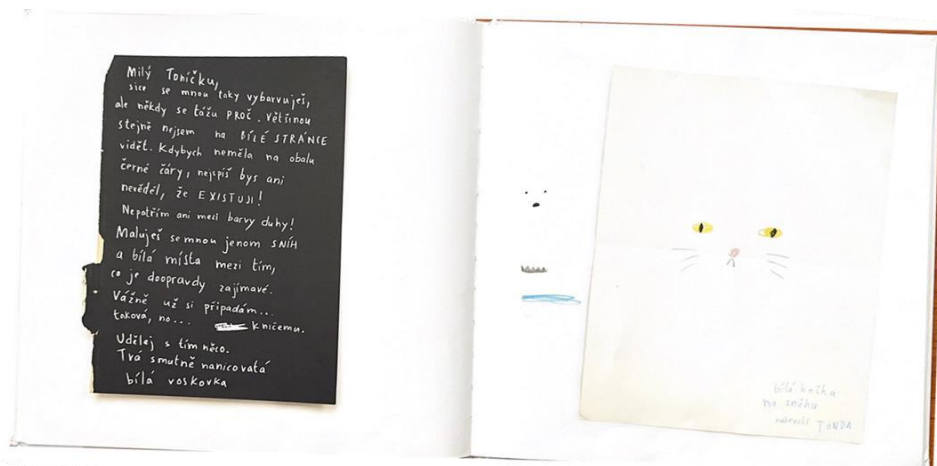 Milý Toníčku,
sice se mnou taky vybarvuješ,
ale někdy se tážu PROČ. Většinou
stejně nejsem na BÍLÉ STRÁNCE
vidět. Kdybych neměla na obalu
černé čáry, nejspíš bys ani
nevěděl, že EXISTUJI!
Nepatřím ani mezi barvy duhy!
Maluješ se mnou jenom SNÍH
a bílá místa mezi tím,
co je doopravdy zajímavé.
Vážně už si připadám...
taková, no... k ničemu.
Udělej s tím něco.
Tvá smutně nanicovatá
bílá voskovka
bílá kočka
na sněhu
nakreslil TONDA